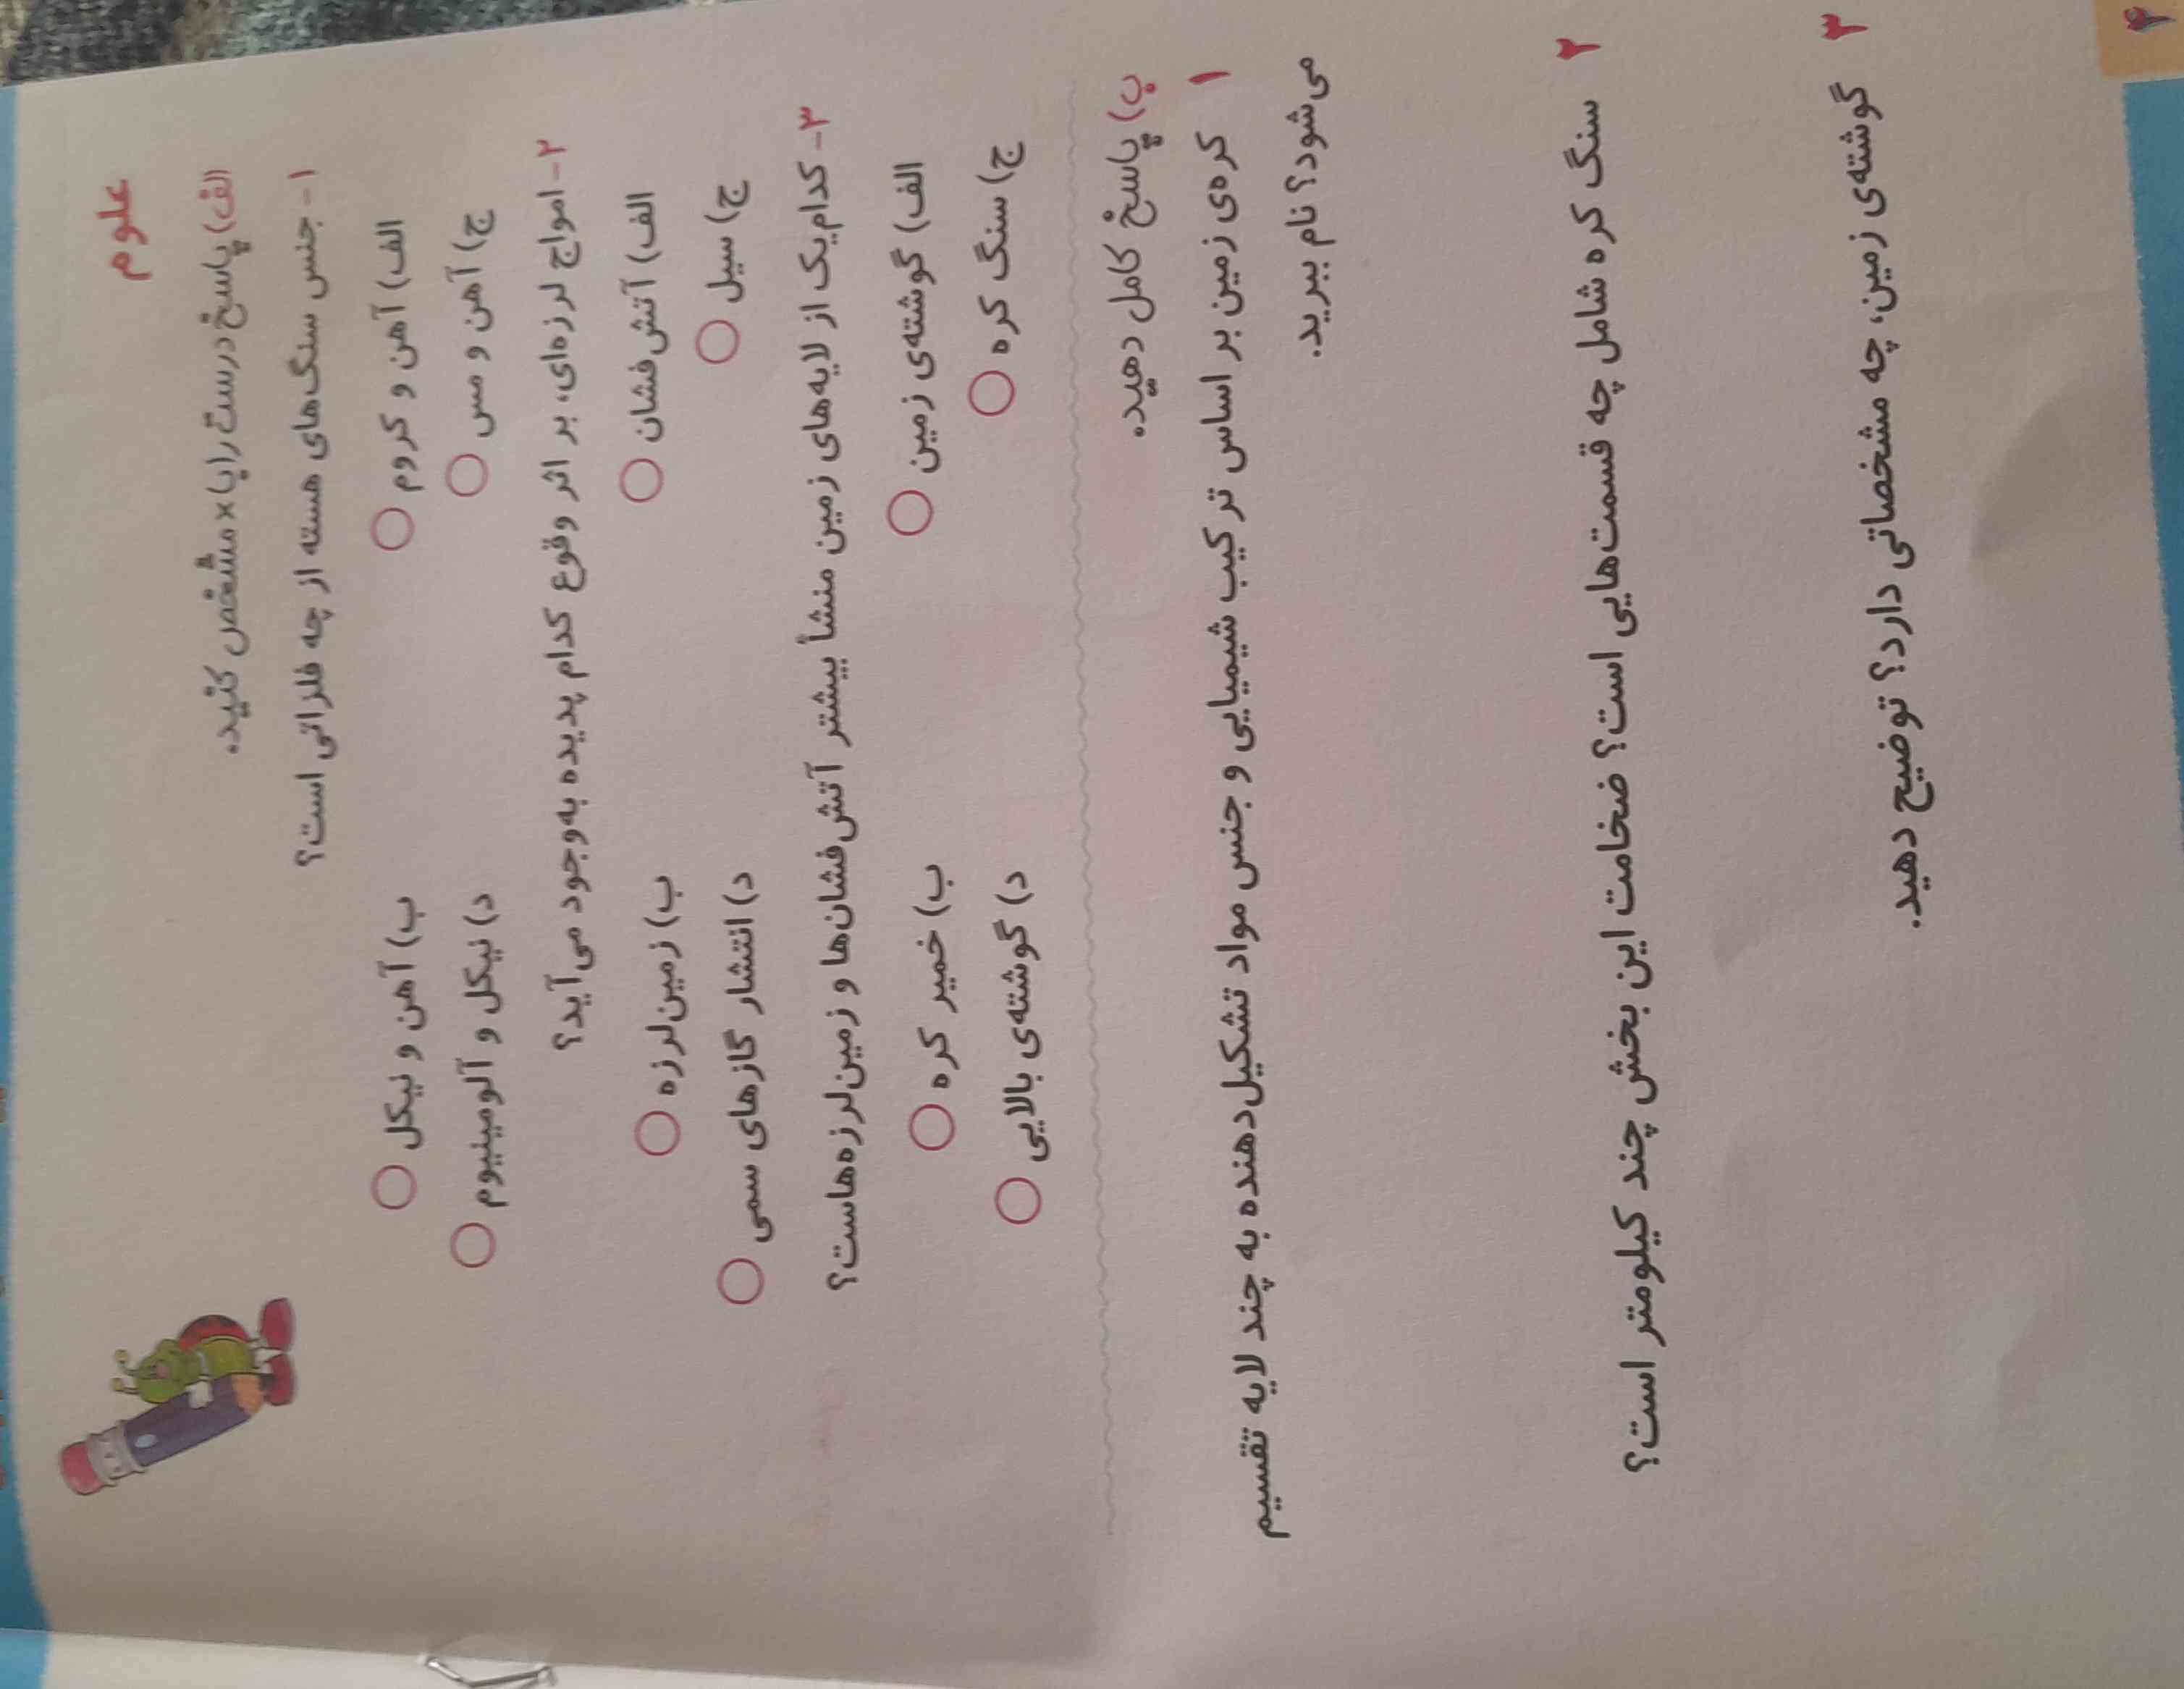 علوم
الف) پاسخ درست را با × مشخص کنید.
۱- جنس سنگ‌های هسته از چه فلزاتی است؟
الف) آهن و کروم ب) آهن و نیکل
ج) آهن و مس د) نیکل و آلومینیوم
۲- امواج لرزه‌ای، بر اثر وقوع کدام پدیده به‌وجود می‌آید؟
الف) آتش‌فشان ب) زمین‌لرزه
ج) سیل د) انتشار گازهای سمی
۳- کدام‌یک از لایه‌های زمین منشأ بیشتر آتش‌فشان‌ها و زمین‌لرزه‌هاست؟
الف) گوشته‌ی زمین ب) خمیر کره
ج) سنگ کره د) گوشته‌ی بالایی
ب) پاسخ کامل دهید.
۱ کره‌ی زمین بر اساس ترکیب شیمیایی و جنس مواد تشکیل‌دهنده به چند لایه تقسیم
می‌شود؟ نام ببرید.
۲ سنگ کره شامل چه قسمت‌هایی است؟ ضخامت این بخش چند کیلومتر است؟
۳ گوشته‌ی زمین، چه مشخصاتی دارد؟ توضیح دهید.
۴